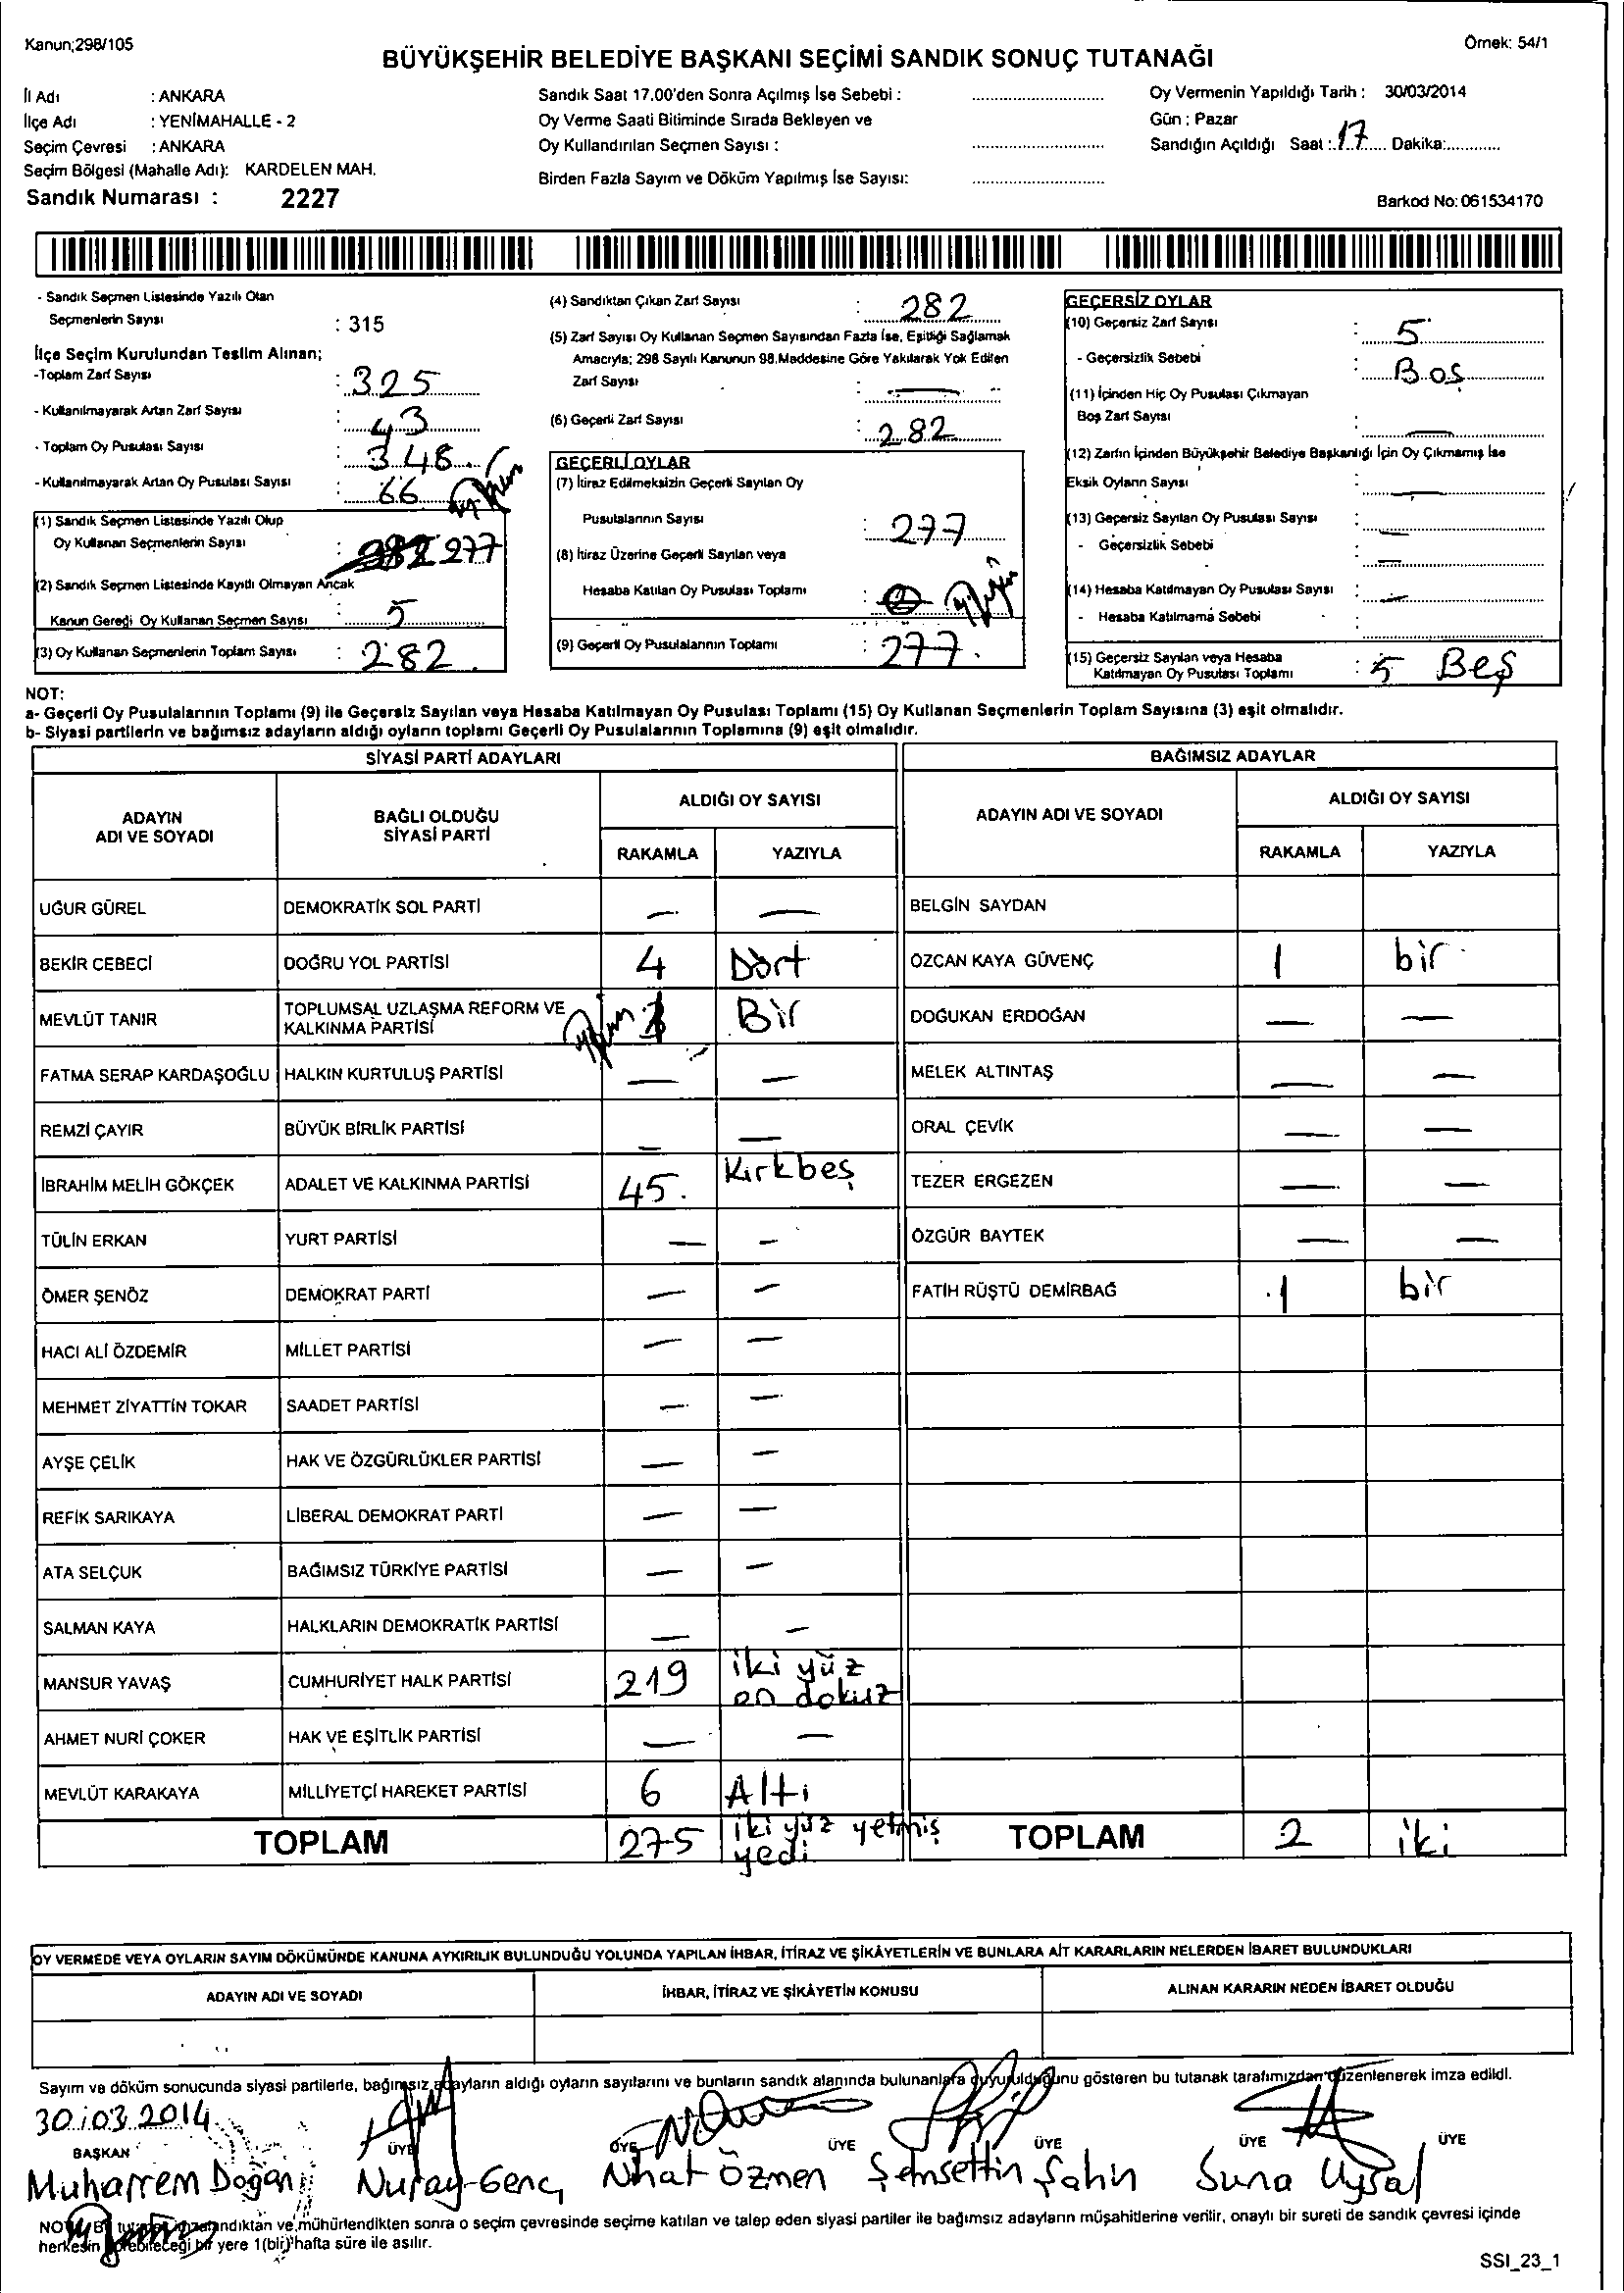 Kanun;298/105
Örnek: 54/1
BÜYÜKŞEHİR BELEDİYE BAŞKANI SEÇİMİ SANDIK SONUÇ TUTANAĞI
İl Adı : ANKARA
İlçe Adı : YENİMAHALLE - 2
Seçim Çevresi : ANKARA
Seçim Bölgesi (Mahalle Adı): KARDELEN MAH.
Sandık Numarası : 2227
Sandık Saat 17.00'den Sonra Açılmış İse Sebebi :
Oy Verme Saati Bitiminde Sırada Bekleyen ve
Oy Kullandırılan Seçmen Sayısı :
Birden Fazla Sayım ve Döküm Yapılmış İse Sayısı:
Oy Vermenin Yapıldığı Tarih : 30/03/2014
Gün : Pazar
Sandığın Açıldığı Saat : 17 Dakika:
Barkod No: 061534170
- Sandık Seçmen Listesinde Yazılı Olan
Seçmenlerin Sayısı : 315
İlçe Seçim Kurulundan Teslim Alınan;
-Toplam Zarf Sayısı : 325
- Kullanılmayarak Artan Zarf Sayısı : 43
- Toplam Oy Pusulası Sayısı : 348
- Kullanılmayarak Artan Oy Pusulası Sayısı : 66
(1) Sandık Seçmen Listesinde Yazılı Olup
Oy Kullanan Seçmenlerin Sayısı : 277
(2) Sandık Seçmen Listesinde Kayıtlı Olmayan Ancak
Kanun Gereği Oy Kullanan Seçmen Sayısı : 5
(3) Oy Kullanan Seçmenlerin Toplam Sayısı : 282
(4) Sandıktan Çıkan Zarf Sayısı : 282
(5) Zarf Sayısı Oy Kullanan Seçmen Sayısından Fazla İse, Eşitliği Sağlamak
Amacıyla; 298 Sayılı Kanunun 98.Maddesine Göre Yakılarak Yok Edilen
Zarf Sayısı : —
(6) Geçerli Zarf Sayısı : 282
GEÇERLİ OYLAR
(7) İtiraz Edilmeksizin Geçerli Sayılan Oy
Pusulalarının Sayısı : 277
(8) İtiraz Üzerine Geçerli Sayılan veya
Hesaba Katılan Oy Pusulası Toplamı :
(9) Geçerli Oy Pusulalarının Toplamı : 277
GEÇERSİZ OYLAR
(10) Geçersiz Zarf Sayısı : 5
- Geçersizlik Sebebi : Boş
(11) İçinden Hiç Oy Pusulası Çıkmayan
Boş Zarf Sayısı : —
(12) Zarfın İçinden Büyükşehir Belediye Başkanlığı İçin Oy Çıkmamış İse
Eksik Oyların Sayısı : —
(13) Geçersiz Sayılan Oy Pusulası Sayısı :
- Geçersizlik Sebebi : —
(14) Hesaba Katılmayan Oy Pusulası Sayısı : —
- Hesaba Katılmama Sebebi :
(15) Geçersiz Sayılan veya Hesaba
Katılmayan Oy Pusulası Toplamı : 5 Beş
NOT:
a- Geçerli Oy Pusulalarının Toplamı (9) ile Geçersiz Sayılan veya Hesaba Katılmayan Oy Pusulası Toplamı (15) Oy Kullanan Seçmenlerin Toplam Sayısına (3) eşit olmalıdır.
b- Siyasi partilerin ve bağımsız adayların aldığı oyların toplamı Geçerli Oy Pusulalarının Toplamına (9) eşit olmalıdır.
SİYASİ PARTİ ADAYLARI
ADAYIN ADI VE SOYADI
BAĞLI OLDUĞU SİYASİ PARTİ
ALDIĞI OY SAYISI
RAKAMLA YAZIYLA
UĞUR GÜREL DEMOKRATİK SOL PARTİ — —
BEKİR CEBECİ DOĞRU YOL PARTİSİ 4 Dört
MEVLÜT TANIR TOPLUMSAL UZLAŞMA REFORM VE KALKINMA PARTİSİ 1 Bir
FATMA SERAP KARDAŞOĞLU HALKIN KURTULUŞ PARTİSİ — —
REMZİ ÇAYIR BÜYÜK BİRLİK PARTİSİ — —
İBRAHİM MELİH GÖKÇEK ADALET VE KALKINMA PARTİSİ 45. Kırkbeş
TÜLİN ERKAN YURT PARTİSİ — —
ÖMER ŞENÖZ DEMOKRAT PARTİ — —
HACI ALİ ÖZDEMİR MİLLET PARTİSİ — —
MEHMET ZİYATTİN TOKAR SAADET PARTİSİ — —
AYŞE ÇELİK HAK VE ÖZGÜRLÜKLER PARTİSİ — —
REFİK SARIKAYA LİBERAL DEMOKRAT PARTİ — —
ATA SELÇUK BAĞIMSIZ TÜRKİYE PARTİSİ — —
SALMAN KAYA HALKLARIN DEMOKRATİK PARTİSİ — —
MANSUR YAVAŞ CUMHURİYET HALK PARTİSİ 219 iki yüz on dokuz
AHMET NURİ ÇOKER HAK VE EŞİTLİK PARTİSİ — —
MEVLÜT KARAKAYA MİLLİYETÇİ HAREKET PARTİSİ 6 Altı
TOPLAM 275 iki yüz yetmiş yedi
BAĞIMSIZ ADAYLAR
ADAYIN ADI VE SOYADI
ALDIĞI OY SAYISI
RAKAMLA YAZIYLA
BELGİN SAYDAN
ÖZCAN KAYA GÜVENÇ 1 bir
DOĞUKAN ERDOĞAN — —
MELEK ALTINTAŞ — —
ORAL ÇEVİK — —
TEZER ERGEZEN — —
ÖZGÜR BAYTEK — —
FATİH RÜŞTÜ DEMİRBAĞ 1 bir
TOPLAM 2 iki
OY VERMEDE VEYA OYLARIN SAYIM DÖKÜMÜNDE KANUNA AYKIRILIK BULUNDUĞU YOLUNDA YAPILAN İHBAR, İTİRAZ VE ŞİKÂYETLERİN VE BUNLARA AİT KARARLARIN NELERDEN İBARET BULUNDUKLARI
ADAYIN ADI VE SOYADI İHBAR, İTİRAZ VE ŞİKÂYETİN KONUSU ALINAN KARARIN NEDEN İBARET OLDUĞU
Sayım ve döküm sonucunda siyasi partilerle, bağımsız adayların aldığı oyların sayılarını ve bunların sandık alanında bulunanlara duyurulduğunu gösteren bu tutanak tarafımızdan düzenlenerek imza edildi.
30.03.2014
BAŞKAN ÜYE ÜYE ÜYE ÜYE ÜYE ÜYE
Muharrem Doğan Nuray Genç Nihat Özmen Şemsettin Şahin Suna Uysal
NOT: Bu tutanak imzalandıktan ve mühürlendikten sonra o seçim çevresinde seçime katılan ve talep eden siyasi partiler ile bağımsız adayların müşahitlerine verilir, onaylı bir sureti de sandık çevresi içinde
herkesin görebileceği bir yere 1(bir) hafta süre ile asılır.
SSI_23_1